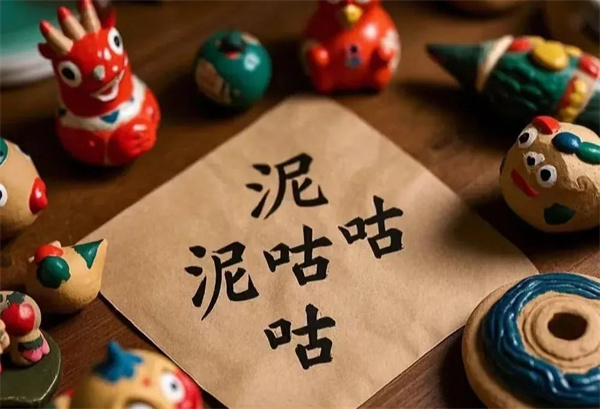 泥
泥咕咕
咕